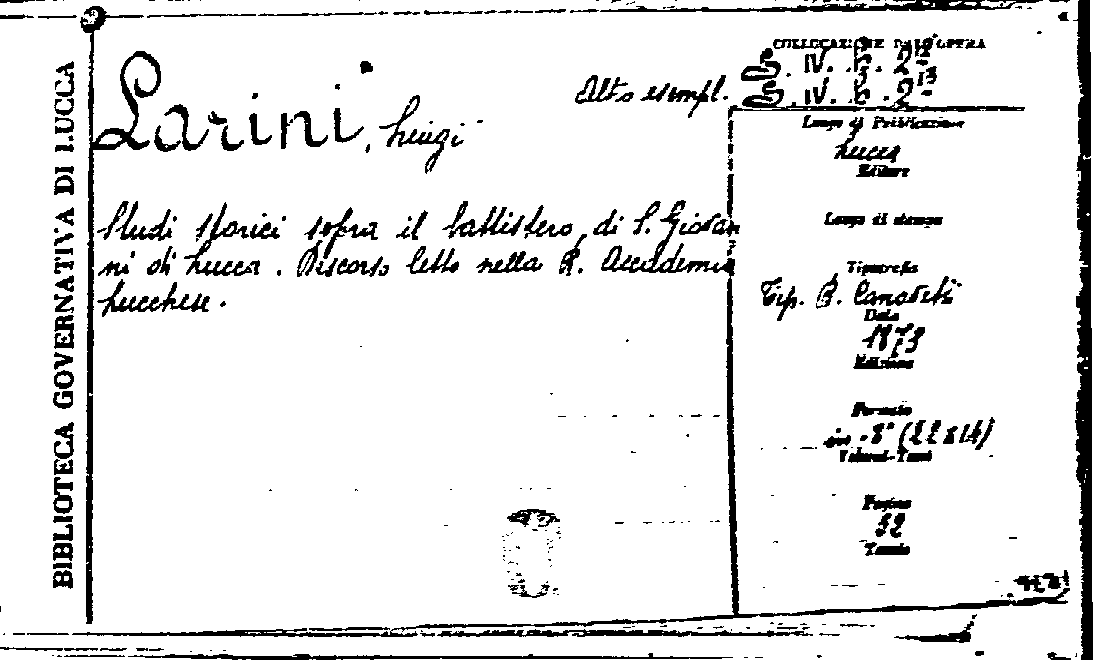 BIBLIOTECA GOVERNATIVA DI LUCCA
COLLOCAZIONE DELL'OPERA
Larini, Luigi
Altro esempl.
Studi storici sopra il battistero di S. Giovan
ni di Lucca. Discorso letto nella R. Accademia
Lucchese.
Luogo di Pubblicazione
Lucca
Editore
Luogo di stampa
Tipografia
Tip. B. Canovetti
Data
1873
Edizione
Formato
in-8° (22x14)
Volumi-Tomi
Pagine
52
Tavole